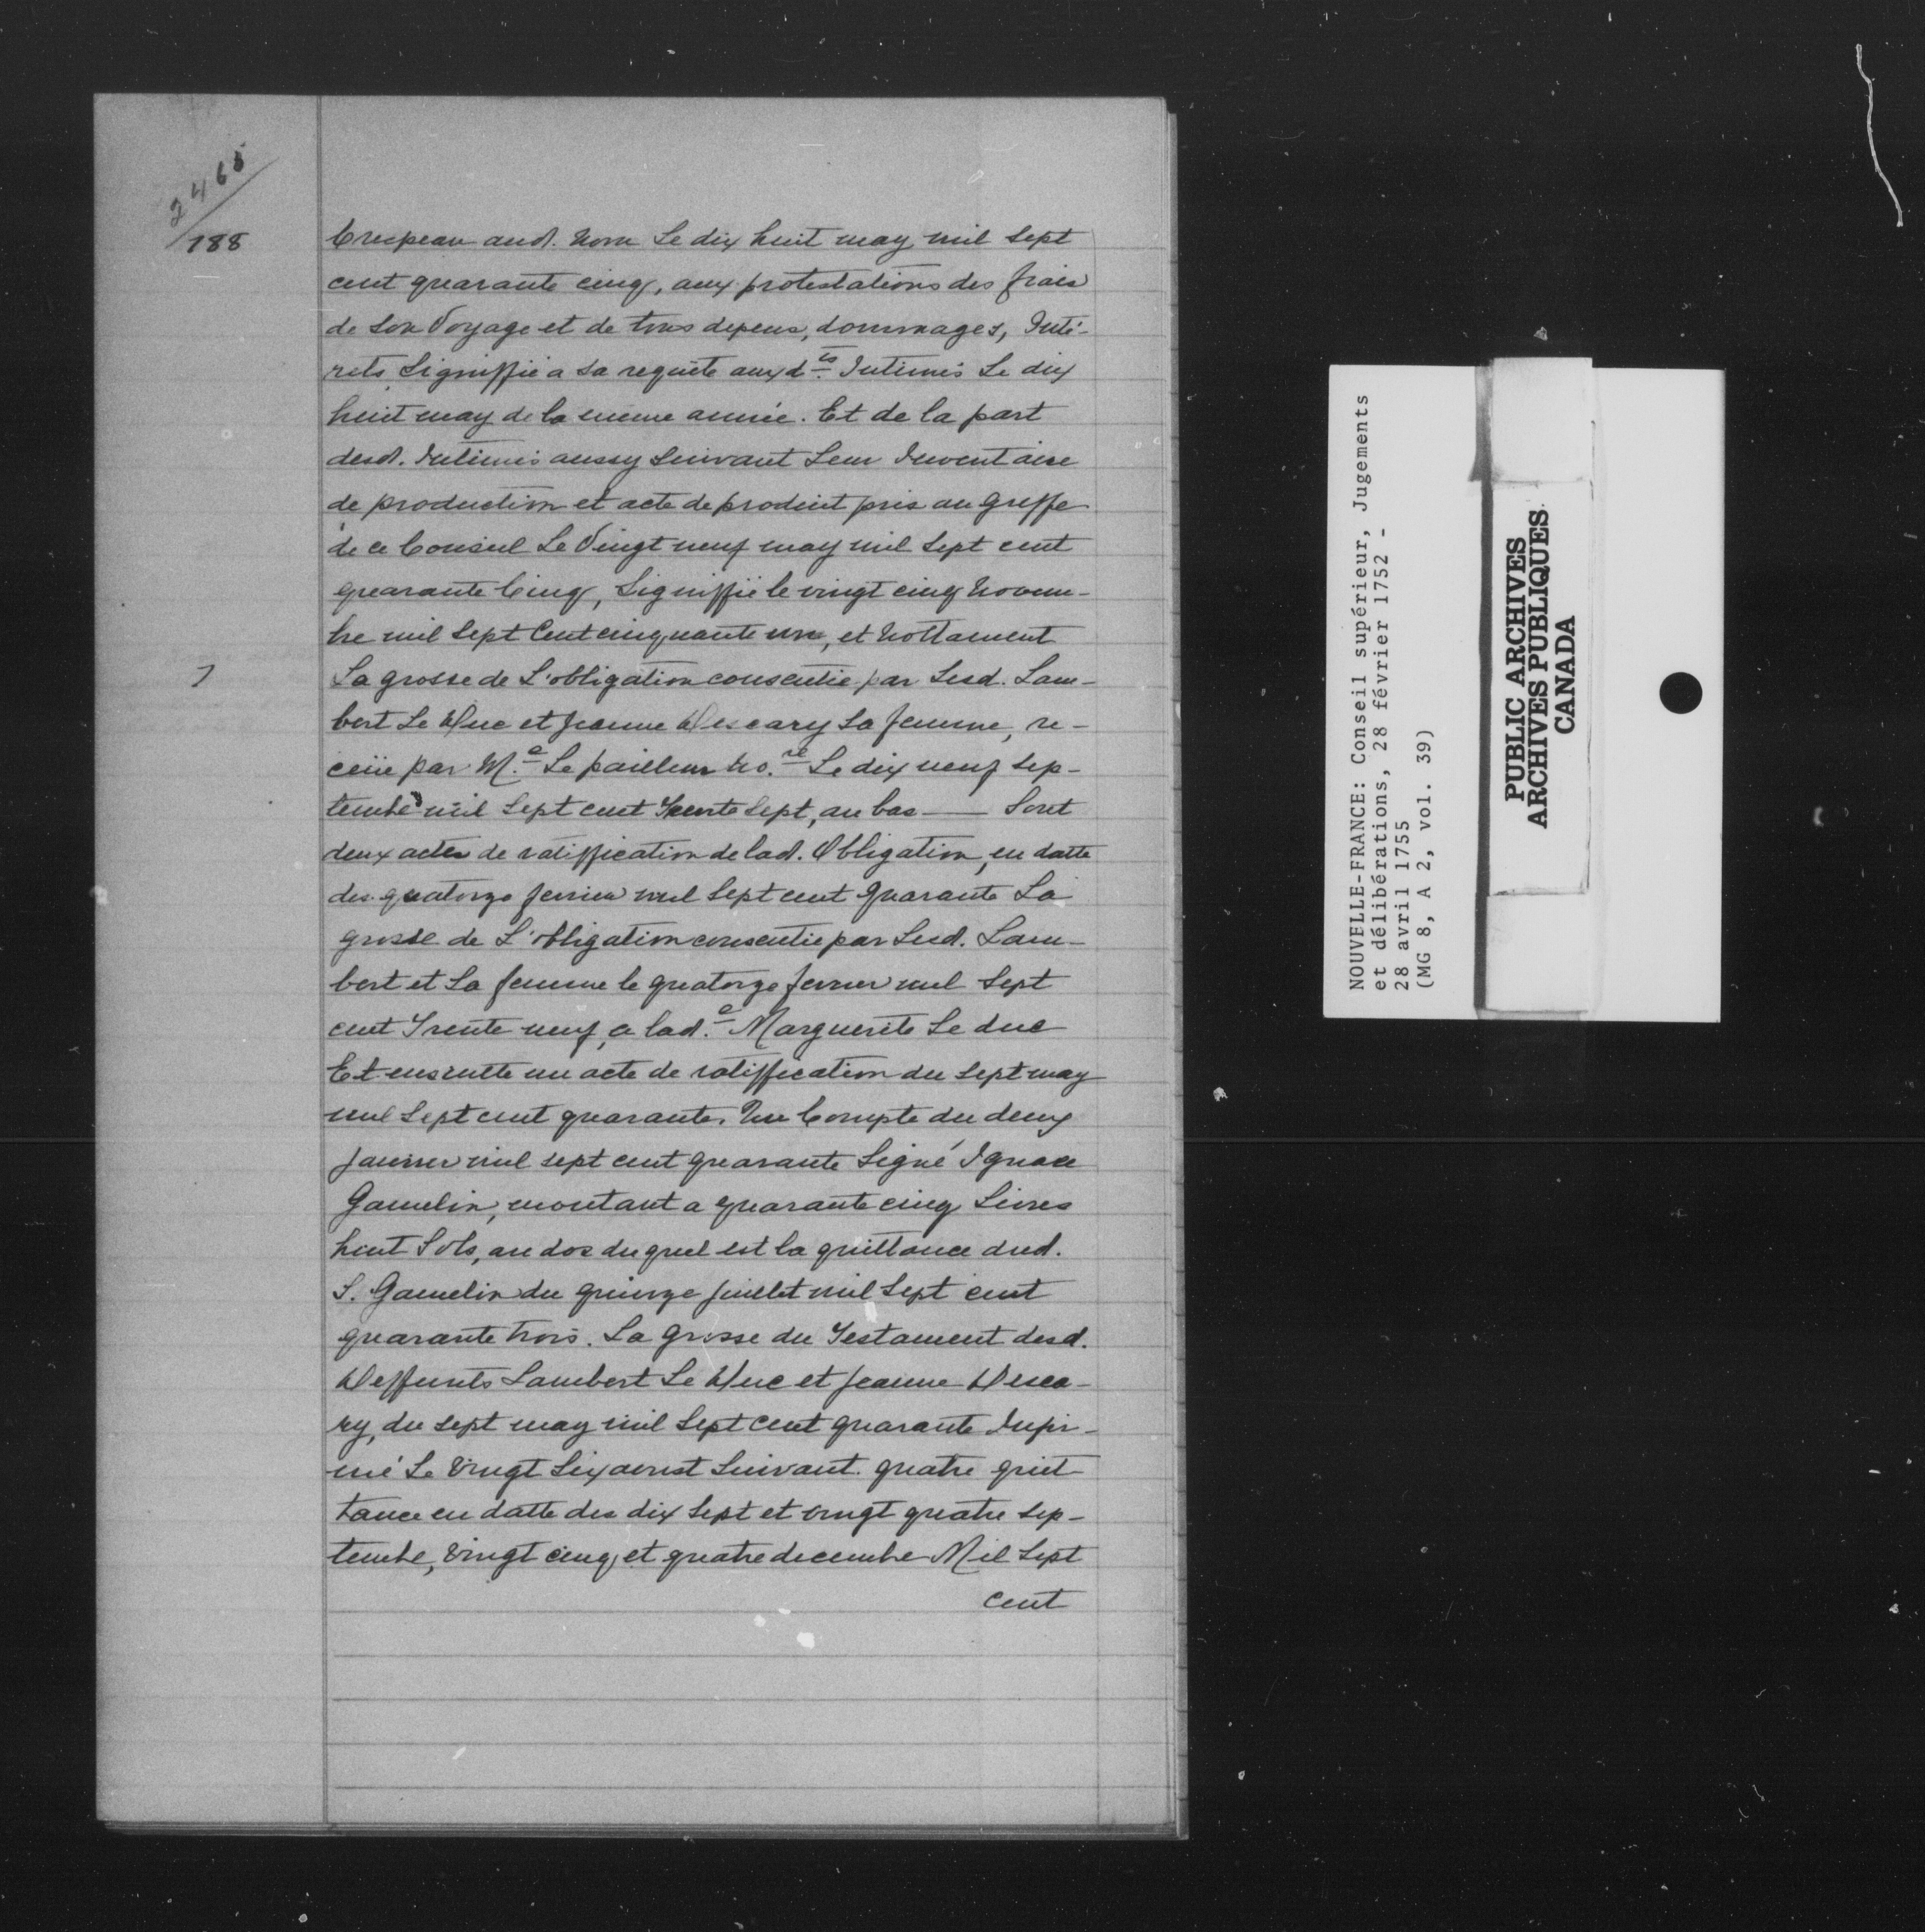 2465
188
Crespeau aud. Nom Le dix huit may mil Sept
cent quarante cinq, aux protestations des frais
de Son Voyage et de tous depens, dommages, Inté-
rets Signiffié a Sa requête auxd.ts Intimés Le dix
huit may de la meme année. Et de la part
desd. Intimés aussy Suivant Leur Inventaire
de production et acte de produit pris au Greffe
de ce Conseil Le Vingt neuf may mil Sept cent
quarante Cinq, Signiffié le vingt cinq Novem-
bre mil Sept Cent cinquante un, et Nottament
La grosse de L'obligation consentie par Lesd. Lam-
bert Le Duc et Jeanne Descary Sa femme, re-
ceüe par M.e Le pailleur No.re Le dix neuf Sep-
tembre mil Sept cent Trente Sept, au bas —— Sont
deux actes de ratiffication de lad. Obligation, en datte
des quatorze fevrier mil Sept cent Quarante La
grosse de L'obligation consentie par Lesd. Lam-
bert et Sa femme le quatorze fevrier mil Sept
cent Trente neuf, a lad.e Marguerite Le duc
Et ensuitte un acte de ratiffication du Sept may
mil Sept cent quarante. Un Compte du deux
Janvier mil sept cent quarante Signé Ignace
Gamelin, montant a quarante cinq Livres
huit Sols, au dos duquel est la quittance dud.
S. Gamelin du quinze Juillet mil Sept cent
quarante trois. La Grosse du Testament desd.
Deffunts Lambert Le Duc et Jeanne Desca-
ry, du sept may mil Sept cent quarante Insi-
nué Le Vingt Six aoust Suivant. quatre quit-
tance en datte des dix Sept et vingt quatre Sep-
tembre, Vingt cinq et quatre decembre Mil Sept
cent
NOUVELLE-FRANCE: Conseil supérieur, Jugements
et délibérations, 28 février 1752 -
28 avril 1755
(MG 8, A 2, vol. 39)
PUBLIC ARCHIVES
ARCHIVES PUBLIQUES
CANADA